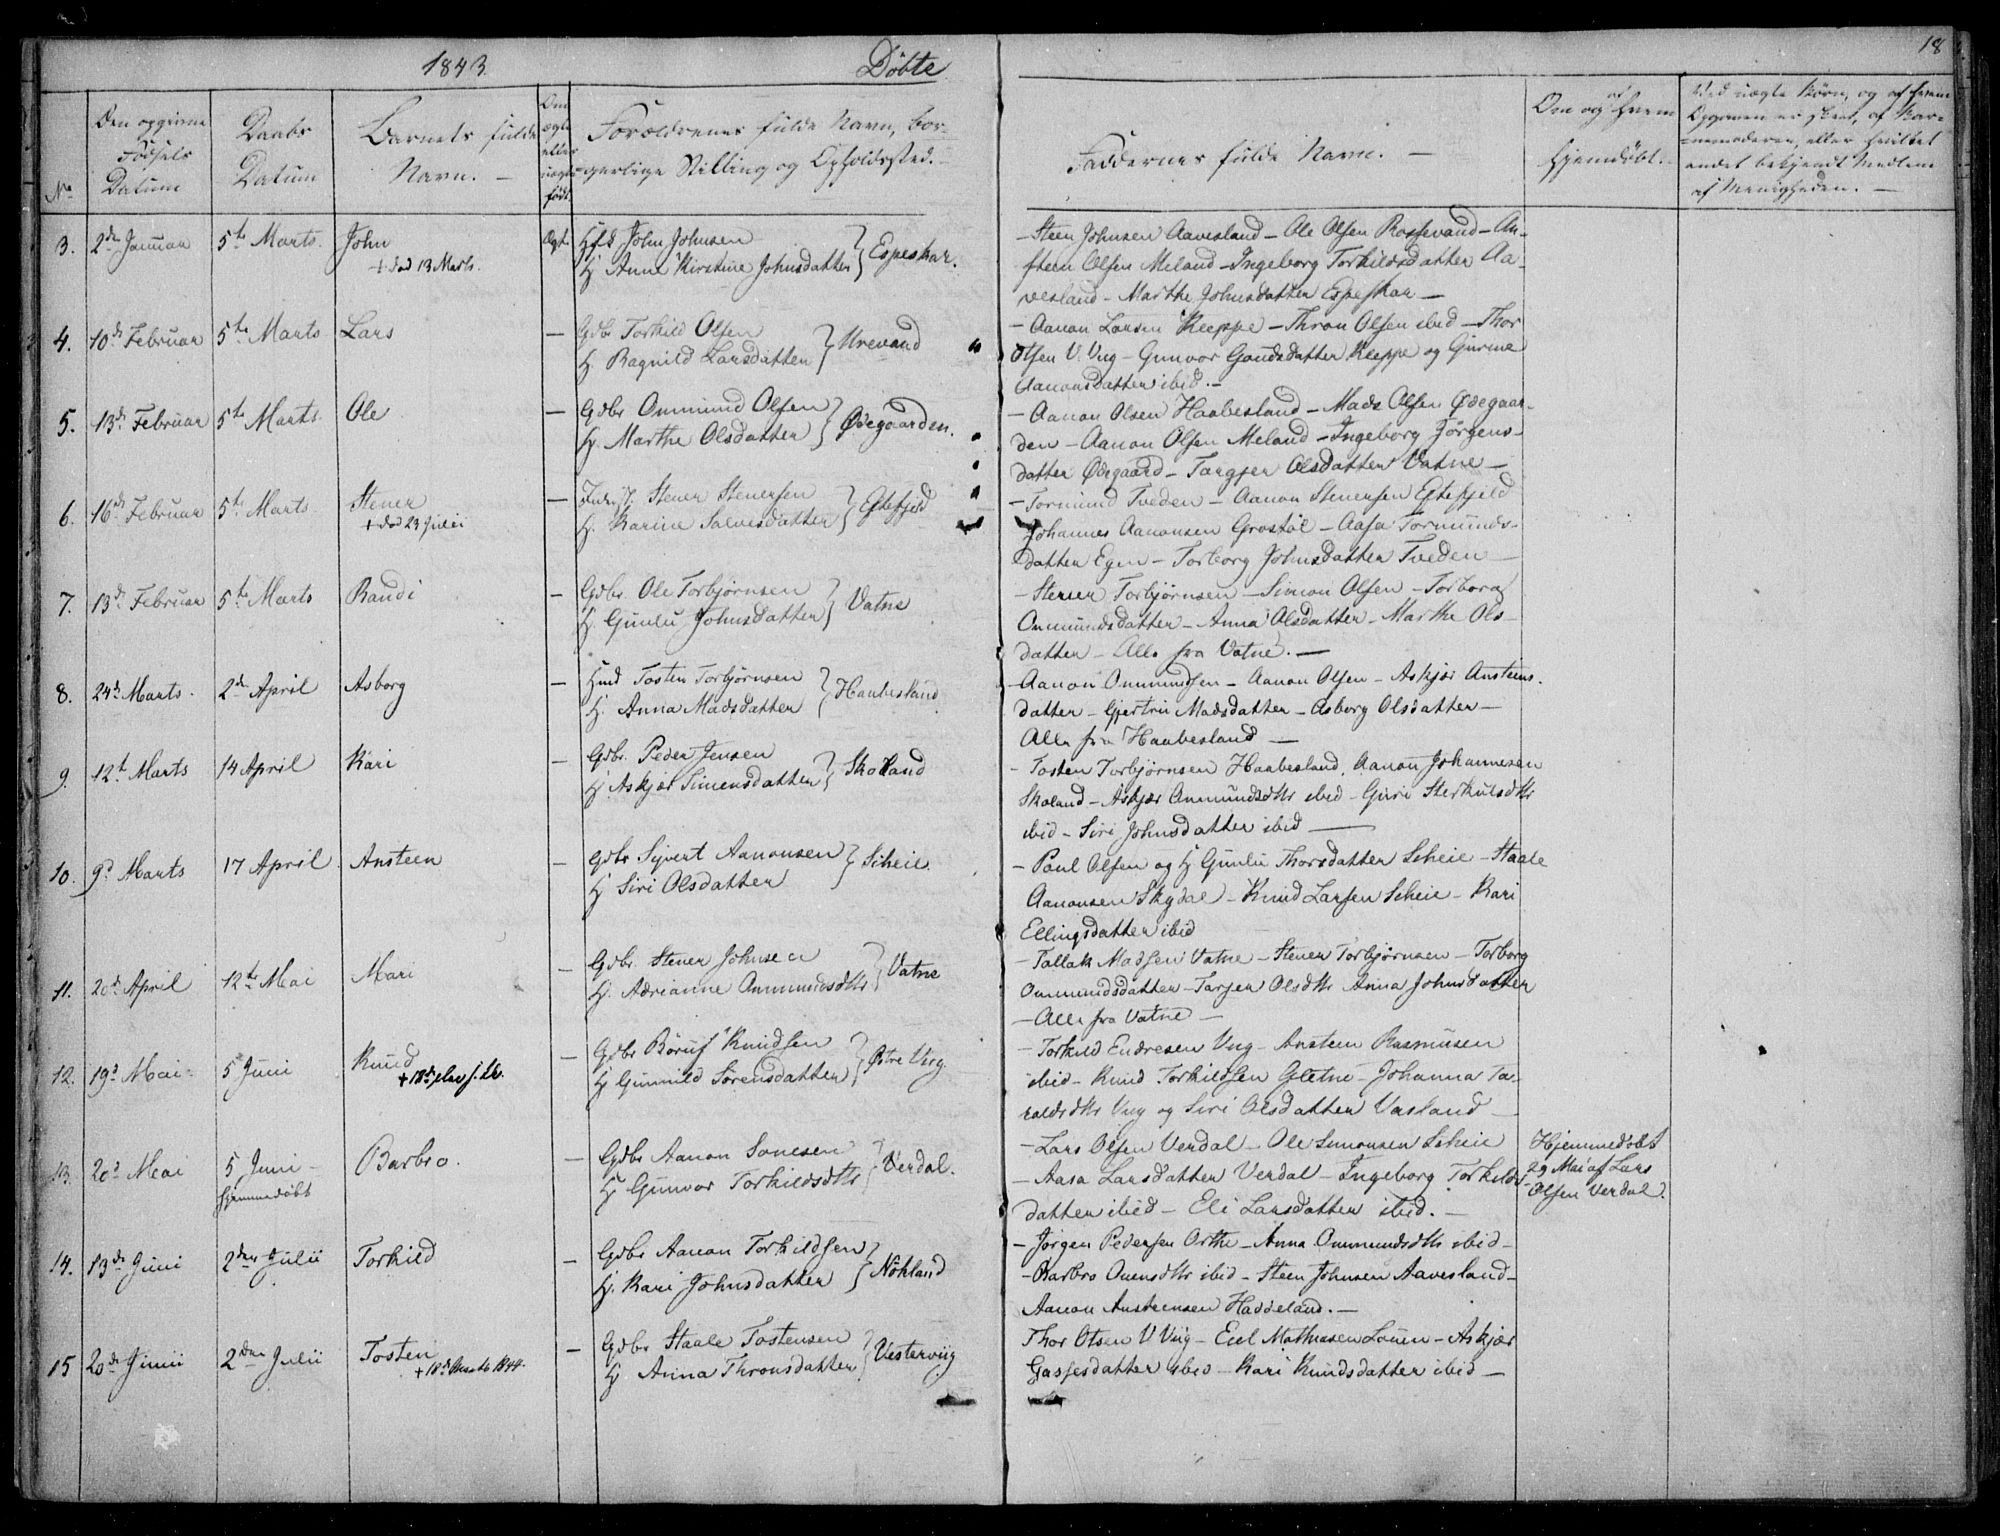 1843.
Döbte
18
No
Den opgivne Födsels Datum
Daabs Datum
Barnets fulde Navn. —
Om ægte eller uægte født.
Forældrenes fulde Navn, borgerlige Stilling og Opholdssted. —
Faddernes fulde Navn. —
Om og af hvem hjemdöbt. —
Ved uægte Börn, og af hvem Opgaven er skeet, af Barnemoderen, eller hvilket andet bekjendt Medlem af Menigheden. —
3. 2den Januar 5te Marts. John Ægt.
+ död 13 Marts.
John Johnsen
H Anne Kirstine Johnsdatter } Espeskar.
— Steen Johnsen Aavesland — Ole Olsen Rossevand — An-
steen Olsen Meland — Ingeborg Torkildsdatter Aa-
vesland — Marthe Johnsdatter Espeskar —
4. 10de Februar 5te Marts Lars —
Gdbr Torkild Olsen
H. Ragnild Larsdatter } Urevand
— Aanon Larsen Kleppe — Thron Olsen ibid — Thor
Olsen V. Vug — Gunvor Goudsdatter Kleppe og Gurine
Aanonsdatter ibid. —
5. 13de Februar 5te Marts. Ole —
Gdbr Ommund Olsen
H. Marthe Olsdatter } Ødegaarden.
— Aanon Olsen Haabesland — Mads Olsen Ødegaar-
den — Aanon Olsen Meland — Ingeborg Jörgens-
datter Ødegaard — Targjer Olsdatter Vatne —
6. 16de Februar 5te Marts Stener —
+ död 23 Julii
Stener Stenersen
H. Karine Salvesdatter } Eftefjeld
— Tormund Tveden — Aanon Stenersen Eftefjeld
Johannes Aanonsen Grostöl — Aasa Tormunds-
datter Egen — Torborg Johnsdatter Tveden —
7. 13de Februar 5te Marts Randi —
Gdbr. Ole Torbjørnsen
H. Gunlu Johnsdatter } Vatne
— Stener Torbjørnsen — Simon Olsen — Torborg
Ommundsdatter — Anna Olsdatter — Marthe Ols-
datter — Alle fra Vatne. —
8. 24de Marts. 2den April Asborg —
Huusmd Tosten Torbjørnsen
H. Anna Madsdatter } Haabesland
— Aanon Ommundsen — Aanon Olsen — Askjær Ansteens-
datter — Gjertru Madsdatter — Asborg Olsdatter —
Alle fra Haabesland —
9. 12te Marts 14 April Kari —
Gdbr. Peder Jensen
H. Askjær Simensdatter } Skoland
— Tosten Torbjørnsen Haabesland. Aanon Johannesen
Skoland — Askjær Ommundsdtr ibid — Guri Sterkulsdtr
ibid — Siri Johnsdatter ibid —
10. 9de Marts 17 April. Ansteen —
Gdbr Sivert Aanonsen
H Siri Olsdatter } Scheie.
— Poul Olsen og H Gunlu Thorsdatter Scheie — Staale
Aanonsen Skydal — Knud Larsen Scheie — Kari
Ellingsdatter ibid
11. 20de April 12te Mai Mari —
Gdbr. Stener Johnsen
H. Adrianne Ommundsdtr } Vatne
— Tallak Madsen Vatne — Stener Torbjørnsen — Torborg
Ommundsdatter — Tarjer Olsdtr Anna Johnsdatter
— Alle fra Vatne —
12. 19de Mai 5 Juni Knud —
Gdbr Böruf Knudsen
H Gunnild Sörensdatter } Østre Vug.
— Torkild Endresen Vug — Ansteen Rasmusen
ibid — Knud Torkildsen Gletne — Johanna Ta-
raldsdtr Vug og Siri Olsdatter Vasland —
13. 20de Mai 5 Juni — Barbro. —
hjemmedöbt
Gdbr Aanon Sonesen
H Gunvor Torkildsdtr } Verdal.
— Lars Olsen Verdal — Ole Simonsen Scheie
— Aasa Larsdatter Verdal — Ingeborg Torkilds-
datter ibid — Eli Larsdatter ibid. —
Hjemmedöbt
29 Mai af Lars
Olsen Verdal.
14. 13de Juni 2den Julii Torkild —
Gdbr Aanon Torkildsen
H. Kari Johnsdatter } Nökland
— Jörgen Pedersen Orthe — Anna Ommundsdtr ibid —
— Barbro Ouensdtr ibid — Steen Johnsen Aavesland —
Aanon Ansteensen Haddeland. —
15 20de Junii 2den Julii Tosten —
Gdbr Staale Tostensen
H Anna Thronsdatter } Vestervug
Thor Olsen V Vug — Eeil Mathiasen Louen — Askjær
Gasjesdatter ibid — Kari Knudsdatter ibid —